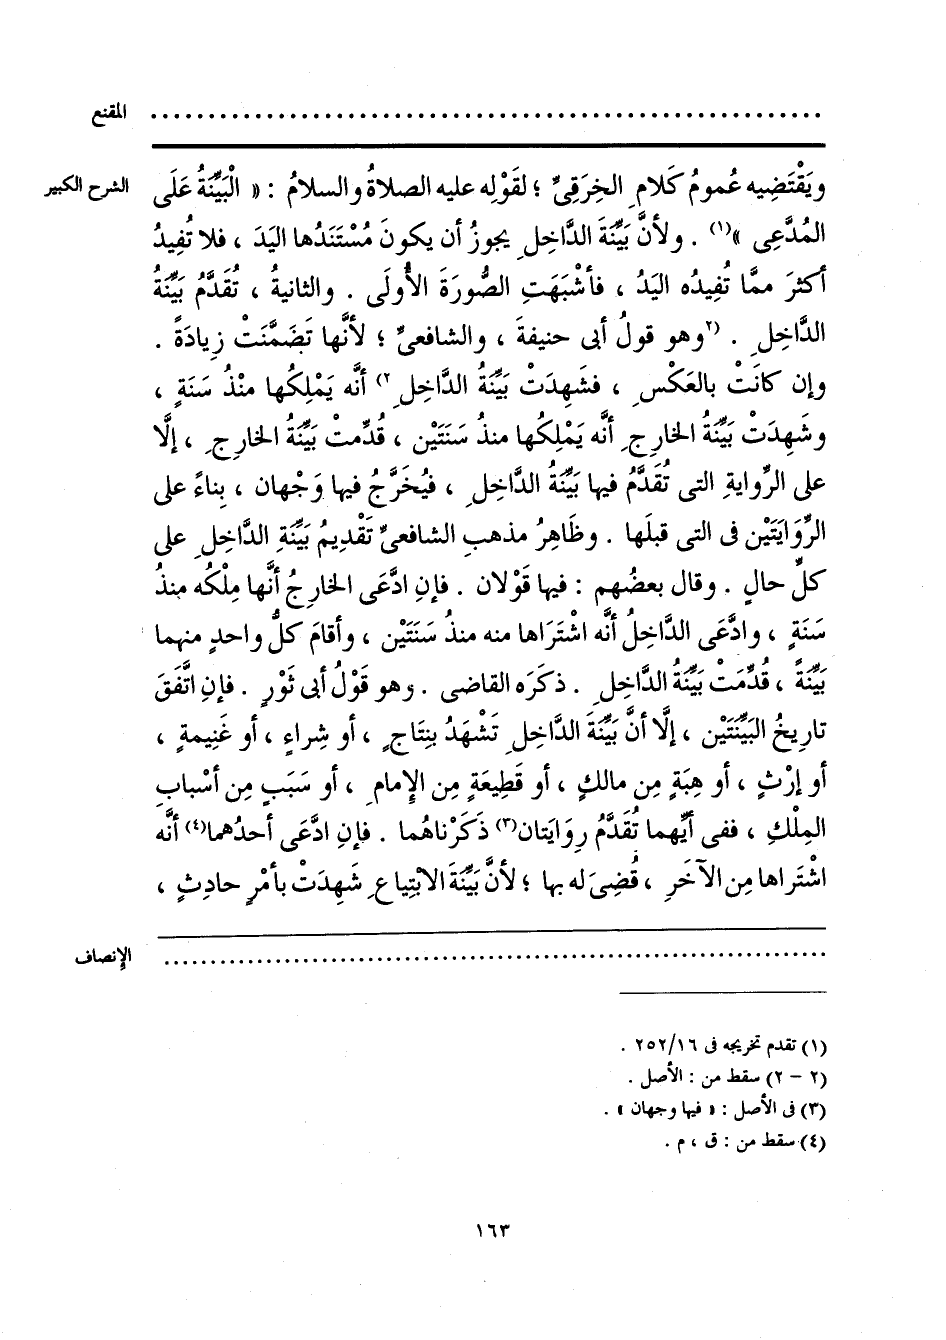 المقنع ..........................................................
الشرح الكبير
ويَقْتَضِيه عُمومُ كَلامِ الخِرَقِىِّ ؛ لقَوْلِه عليه الصلاةُ والسلامُ : « الْبَيِّنَةُ عَلَى
المُدَّعِى »(١) . ولأنَّ بَيِّنَةَ الدَّاخِلِ يجوزُ أن يكونَ مُسْتَنَدُها اليَدَ ، فلا تُفِيدُ
أكثرَ ممَّا تُفِيدُه اليَدُ ، فأشْبَهَتِ الصُّورَةَ الأُولَى . والثانيةُ ، تُقَدَّمُ بَيِّنَةُ
الدَّاخِلِ . (٢وهو قولُ أبى حنيفةَ ، والشافعىِّ ؛ لأنَّها تَضَمَّنَتْ زِيادَةً .
وإن كانَتْ بالعَكْسِ ، فشَهِدَتْ بَيِّنَةُ الدَّاخِلِ٢) أنَّه يَمْلِكُها منْذُ سَنَةٍ ،
وشَهِدَتْ بَيِّنَةُ الخارِجِ أنَّه يَمْلِكُها منذُ سَنَتَيْن ، قُدِّمتْ بَيِّنَةُ الخارِجِ ، إلَّا
على الرِّوايةِ التى تُقَدَّمُ فيها بَيِّنَةُ الدَّاخِلِ ، فيُخَرَّجُ فيها وَجْهان ، بِناءً على
الرِّوَايَتَيْن فى التى قبلَها . وظَاهِرُ مذهبِ الشافعىِّ تَقْدِيمُ بَيِّنَةِ الدَّاخِلِ على
كلِّ حالٍ . وقال بعضُهم : فيها قَوْلان . فإنِ ادَّعَى الخارِجُ أنَّها مِلْكُه منذُ
سَنَةٍ ، وادَّعَى الدَّاخِلُ أنَّه اشْتَرَاها منه منذُ سَنَتَيْن ، وأقامَ كلُّ واحدٍ منهما
بَيِّنَةً ، قُدِّمَتْ بَيِّنَةُ الدَّاخِلِ . ذكَرَه القاضى . وهو قَوْلُ أبى ثَوْرٍ . فإنِ اتَّفَقَ
تارِيخُ البَيِّنَتَيْن ، إلَّا أنَّ بَيِّنَةَ الدَّاخِلِ تَشْهَدُ بنِتَاجٍ ، أو شِراءٍ ، أو غَنِيمةٍ ،
أو إرْثٍ ، أو هِبَةٍ مِن مالكٍ ، أو قَطِيعَةٍ مِن الإِمامِ ، أو سَبَبٍ مِن أسْبابِ
المِلْكِ ، ففى أيِّهما تُقَدَّمُ رِوَايَتان(٣) ذَكَرْناهُما . فإنِ ادَّعَى أحدُهما(٤) أنَّه
اشْتَراها مِن الآخَرِ ، قُضِىَ له بها ؛ لأنَّ بَيِّنَةَ الابْتِياعِ شَهِدَتْ بأمْرٍ حادِثٍ ،
الإنصاف ..........................................................
(١) تقدم تخريجه فى ٢٥٢/١٦ .
(٢ - ٢) سقط من : الأصل .
(٣) فى الأصل : « فيها وجهان » .
(٤) سقط من : ق ، م .
١٦٣